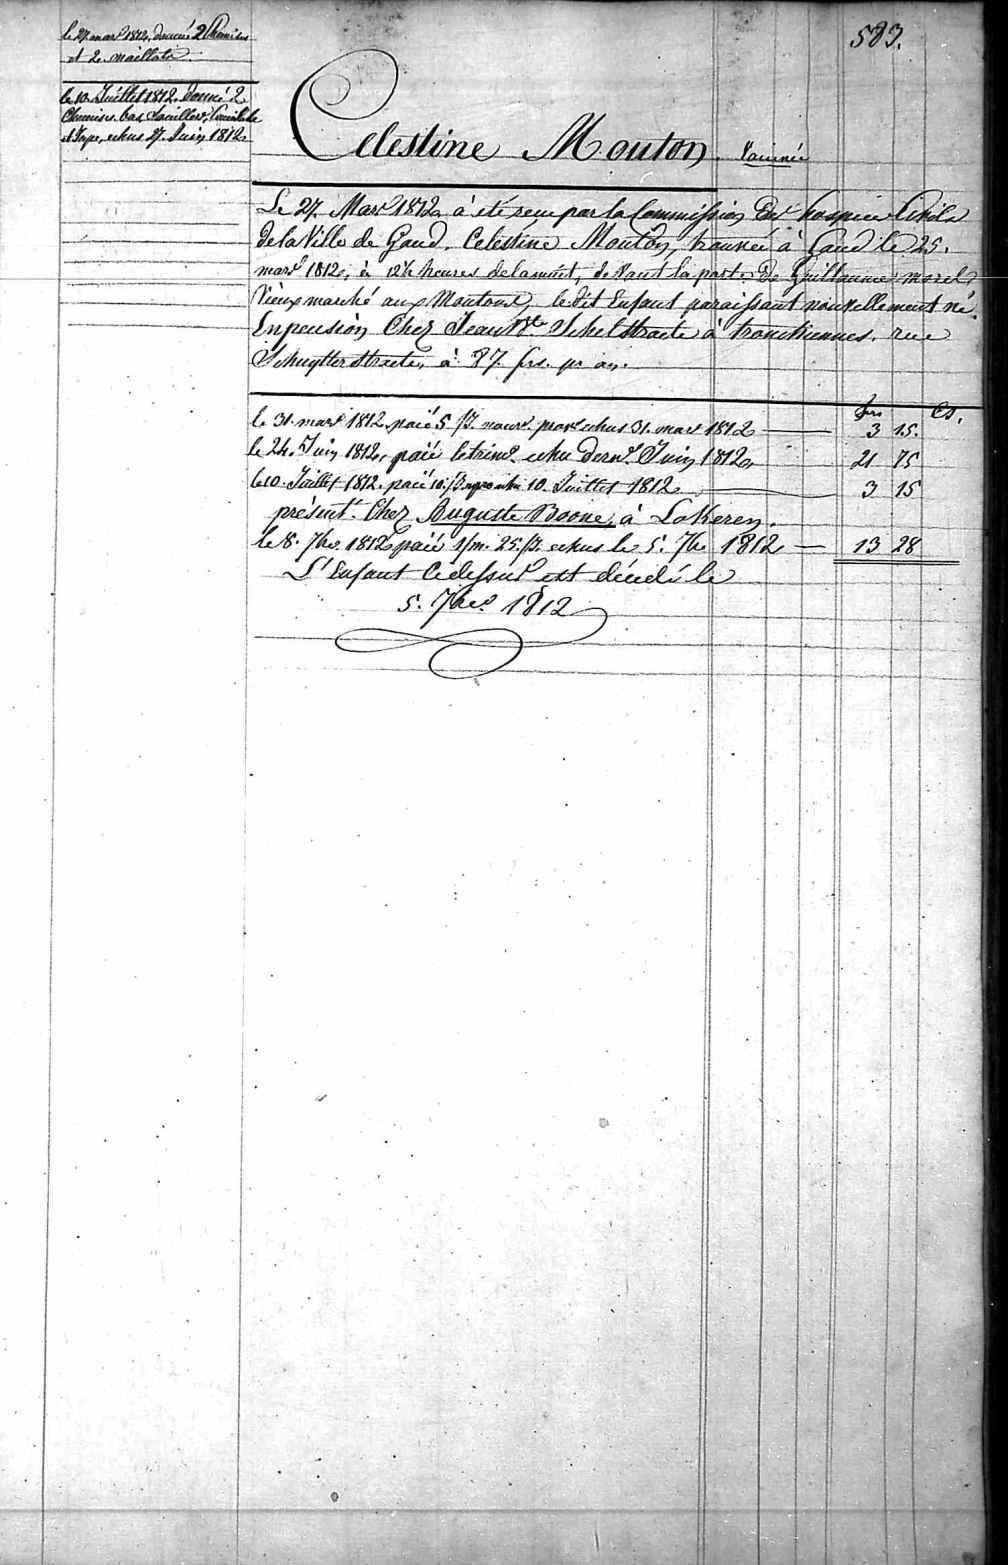 583.
le 27. mars 1812, donné 2 Chemises
et 2. maillots.
le 10. Juillet 1812. Donné 2
Chemises, bas,
et Jupe, echus 27. Juin 1812
Celestine Mouton. Vaccinée
Le 27. Mars 1812, à été reçue par la Commission Des hospices Civils
de la Ville de Gand, Celestine Mouton, trouvée à Gand le 25.
mars 1812, à 12½ heures de la nuit, devant la porte De Guillaume morel,
Vieux marché aux Moutons, le dit Enfant paraissant nouvellement né.
En pension Chez Jean Bte Schelstraete à tronchiennes, rue
Schuytterstraete, à 87. frs. pr an.
frs Cs.
le 31. mars 1812. paié 5/3. nourr. prov. echus 31. mars 1812 — 3 15.
le 24. Juin 1812, paié le trime. echu dernr. Juin 1812, 21 75
le 10. Juillet 1812. paié 10/3 echu 10. Juillet 1812 — 3 15
présentt. Chez Auguste Boone, à Lokeren.
le 8. 7bre 1812 paié 1/m. 25/3. echus le 5. 7bre 1812 — 13 28
L'Enfant Cidessus est décédé le
5. 7bre. 1812